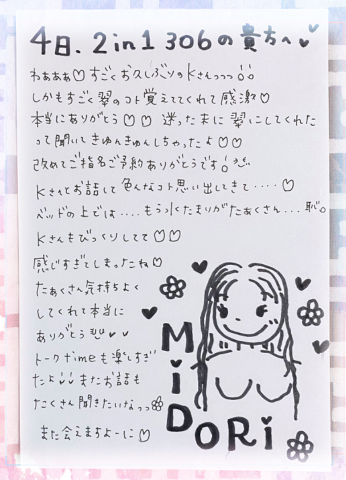 4日、2in1 306の貴方へ♥
わぁぁぁ♡すごくお久しぶりのKさんっっっ
しかもすごく翠のコト覚えててくれて感激♡
本当にありがとう♡♡ 迷った末に翠にしてくれた
って聞いてきゅんきゅんしちゃったよ♡♡
改めてご指名ご予約ありがとうです!
Kさんとお話して色んなコト思い出してきて‥‥♡
ベッドの上では‥‥もう水たまりがたぁくさん‥‥恥。
Kさんもびっくりしてて♡♡
感じすぎてしまったこね♡
たぁくさん気持ちよく
してくれて本当に
ありがとう♥♥
トークtimeも楽しすぎ
たよ またお話も
たくさん聞きたいなっっ
また会えますよーに♡
MiDORi